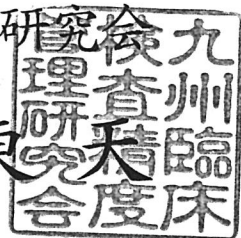 研究会
九州臨床
検査精度
管理研究会